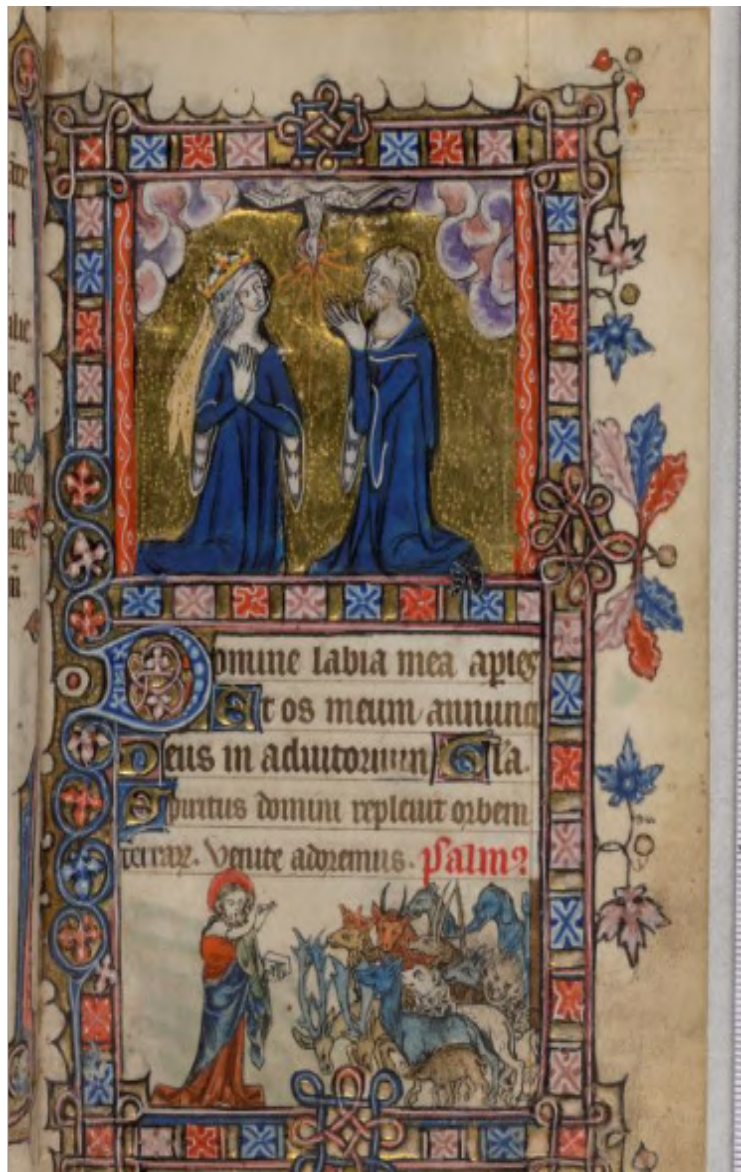 Domine labia mea apies
Et os meum annunci
Deus in adiutorium Gla.
Spiritus domini repleuit orbem
terrar. Venite adoremus. psalm